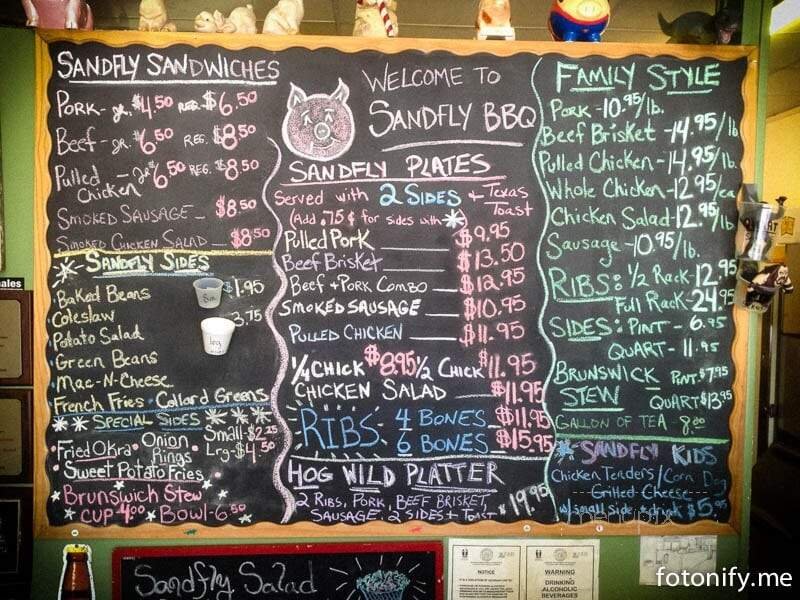 SANDFLY SANDWICHES
PORK - jr. $4.50 REG. $6.50
Beef - jr. $6.50 REG. $8.50
Pulled Chicken - jr. $6.50 REG. $8.50
SMOKED SAUSAGE - $8.50
SMOKED CHICKEN SALAD - $8.50
SANDFLY SIDES
Baked Beans
Coleslaw
Potato Salad
Green Beans
Mac-N-Cheese
French Fries · Collard Greens
Sm $1.95
lrg 3.75
SPECIAL SIDES
Fried Okra · Onion Rings
Sweet Potato Fries
Small - $2.25
Lrg - $4.50
Brunswick Stew
CUP - 4.00 Bowl - 6.50
WELCOME TO
SANDFLY BBQ
SANDFLY PLATES
Served with 2 SIDES + Texas Toast
(Add .75¢ for sides with *)
Pulled Pork $9.95
Beef Brisket $13.50
Beef + Pork Combo $12.95
SMOKED SAUSAGE $10.95
PULLED CHICKEN $11.95
1/4 CHICK $8.95 1/2 CHICK $11.95
CHICKEN SALAD $11.95
RIBS 4 BONES - $11.95
6 BONES - $15.95
HOG WILD PLATTER
2 RIBS, PORK, BEEF BRISKET,
SAUSAGE, 2 SIDES + TOAST $19.95
FAMILY STYLE
PORK - 10.95/lb.
Beef Brisket - 14.95/lb
Pulled Chicken - 14.95/lb.
Whole Chicken - 12.95/ea
Chicken Salad - 12.95/lb.
Sausage - 10.95/lb.
RIBS: 1/2 Rack - 12.95
Full Rack - 24.95
SIDES: PINT - 6.95
QUART - 11.95
BRUNSWICK STEW PINT $7.95
QUART $13.95
GALLON OF TEA 8.00
* SANDFLY KIDS
Chicken Tenders / Corn Dog
Grilled Cheese
w/ small side + drink $5.95
menupix
Sandfly Salad
NOTICE
WARNING
DRINKING
ALCOHOLIC
BEVERAGES
fotonify.me